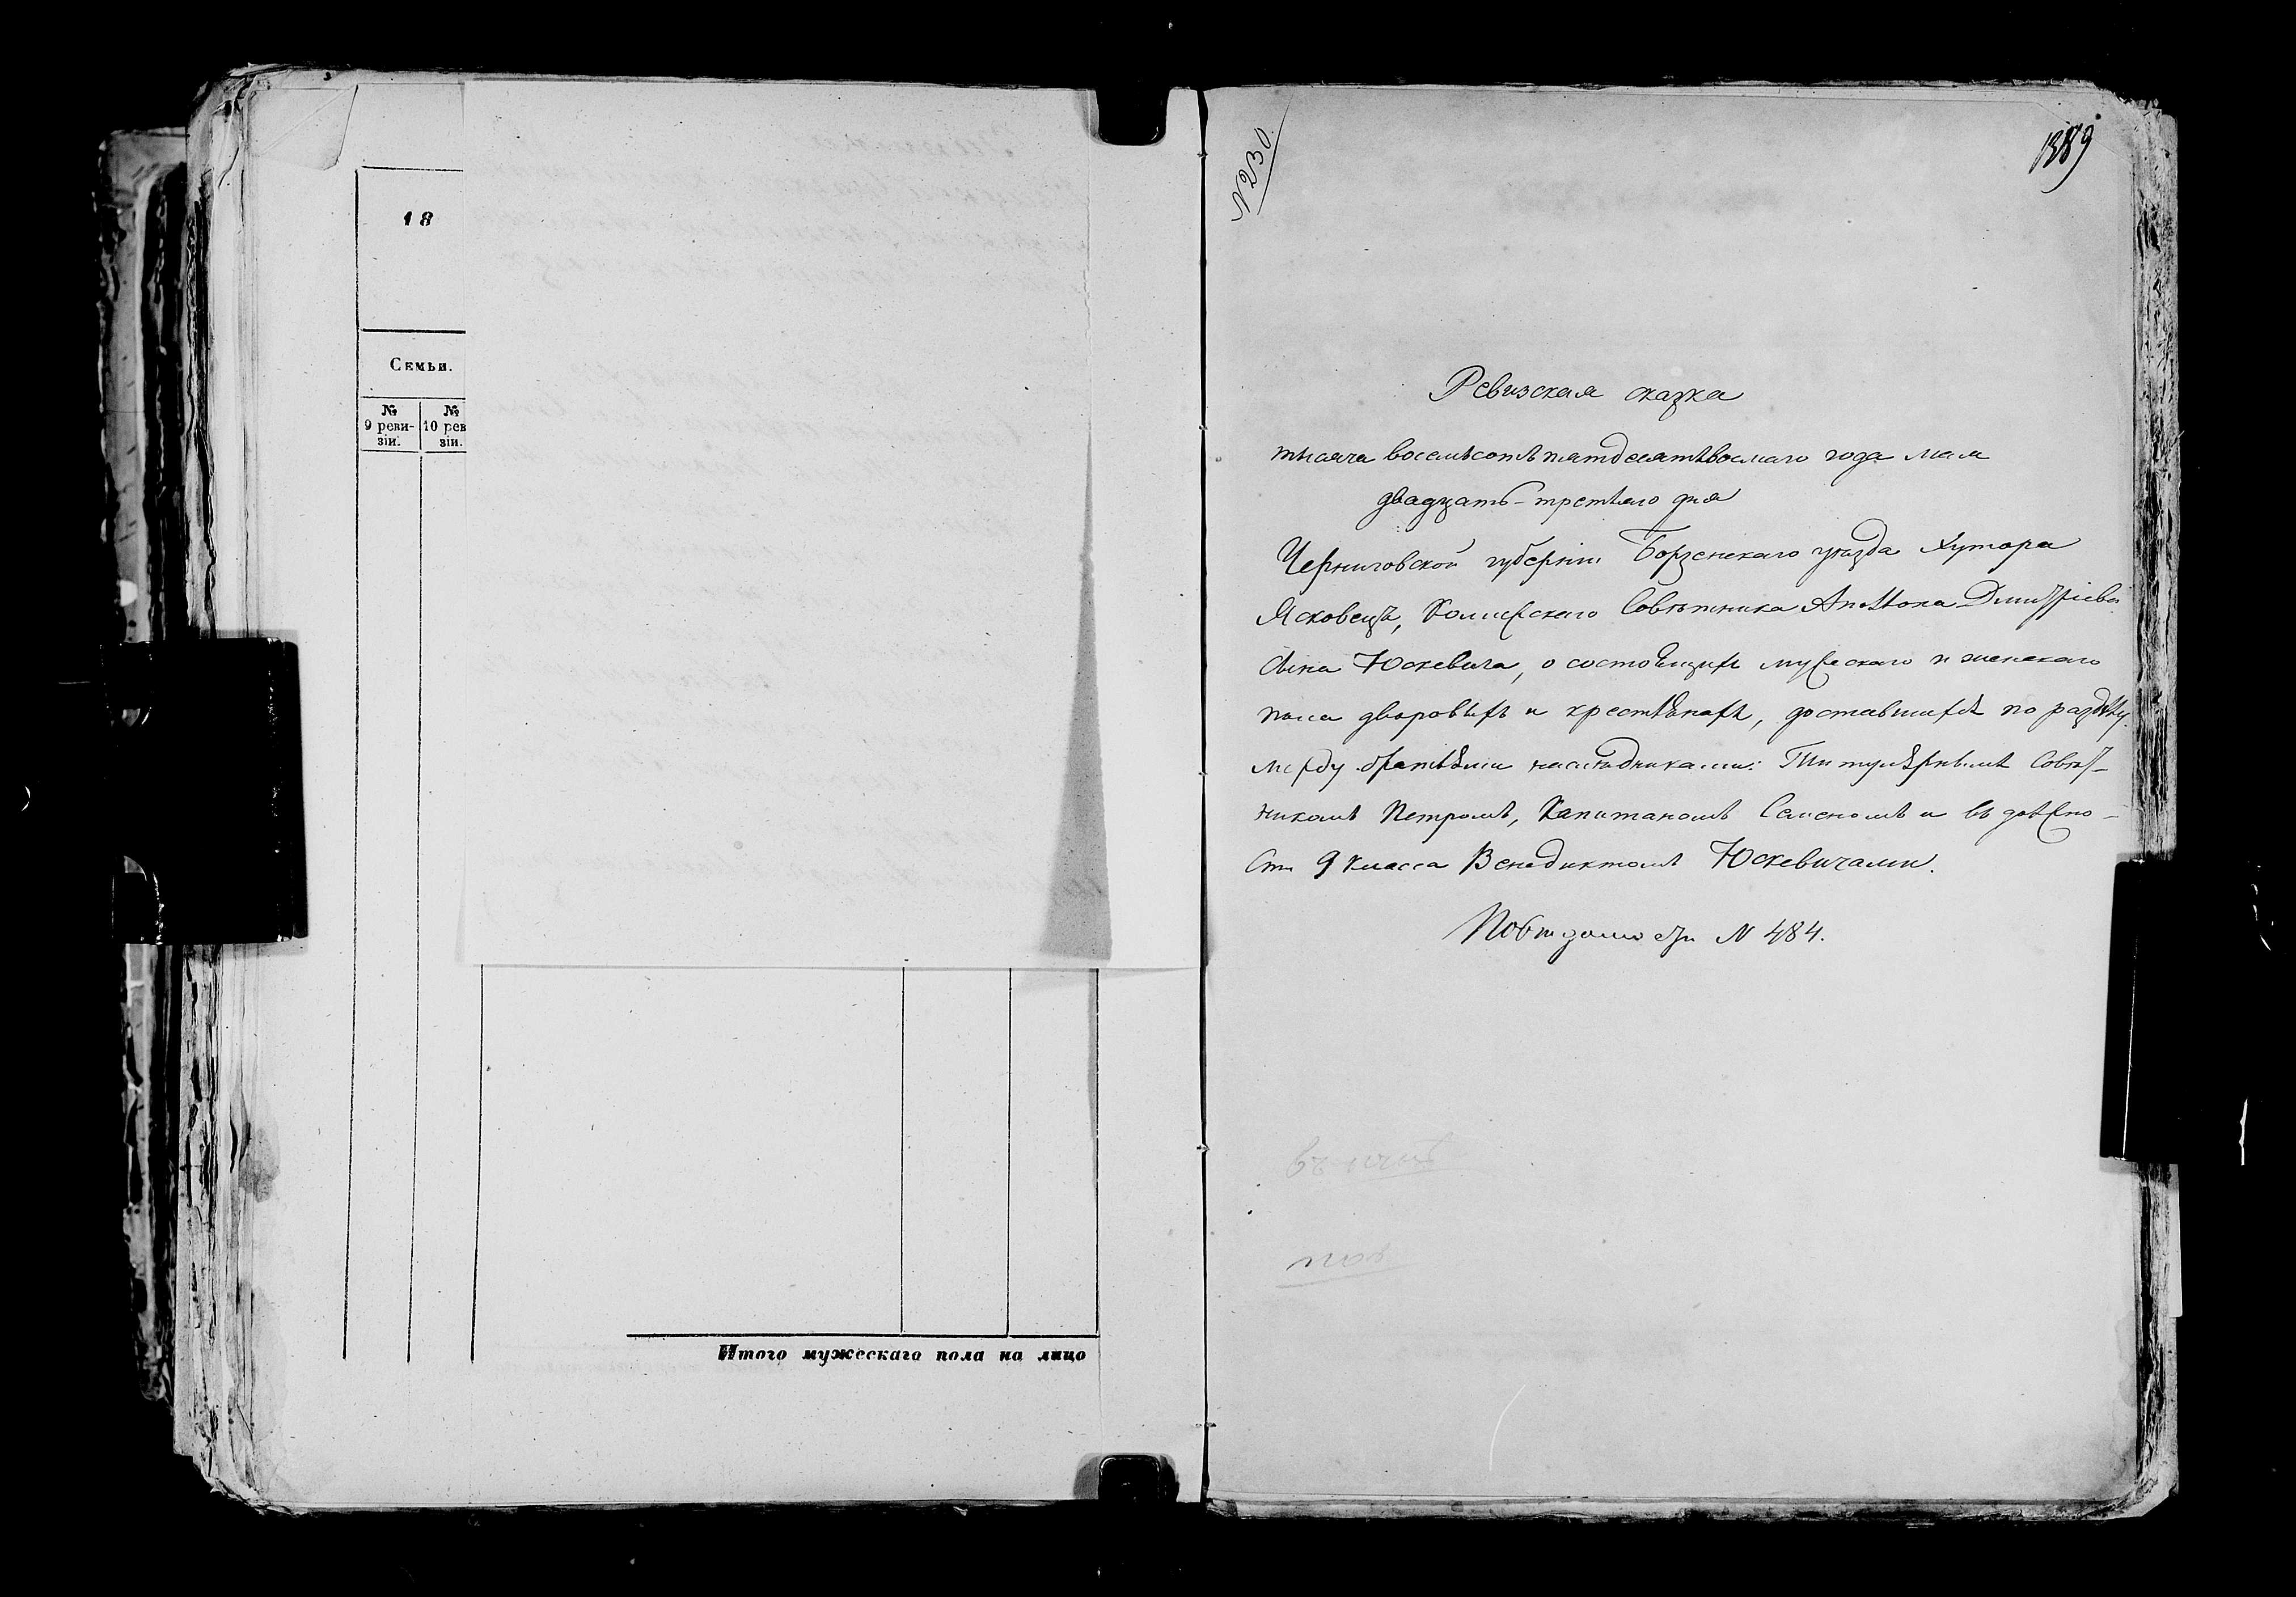 18
Семьи.
№ 9 реви-зіи.
№ 10 рев зіи.
Итого мужескаго пола на лицо
№ 230.
1389
Ревизская сказка
тысяча восемьсотъ пятдесятъвосмаго года мая
двадцать-третьяго дня
Черниговской губерніи Борзенскаго уѣзда Хутора
Ясковецъ, Колежскаго Совѣтника Аполлона Дмитріева
сына Юскевича, о состоящихъ мужескаго и женскаго
пола дворовыхъ и крестьянахъ, доставшихся по раздѣлу
между братьями наслѣдниками: Титулярнымъ Совѣт-
никомъ Петромъ, Капитаномъ Семеномъ и въ должно-
сти 9 класса Венедиктомъ Юскевичами.
По вѣдомости № 484.